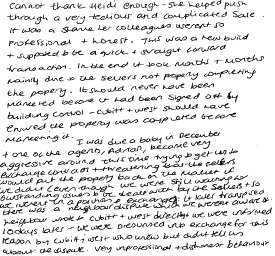 Cannot thank Heidi enough - she helped push
through a very tedious and complicated sale.
It was a shame her colleagues weren't so
professional + honest. This was a new build
+ supposed to be a quick + straight forward
transaction. In the end it took months + months
mainly due to the sellers not properly completing
the property. It should never have been
marketed before it had been signed off by
building control - Cubitt + West should have
ensured the property was completed before
marketing it.
I was due a baby in December
+ one of the agents, Adrian, became very
aggressive around this time trying to get us to
exchange contracts + threatening that the sellers
would put the property back on the market if
we didn't (even though we were still waiting for
outstanding issues to be dealt with by the sellers + so
we weren't in a position to exchange). It later transpired
there was a neighbour dispute which we weren't aware of.
Neighbour wrote to Cubitt + West directly + we were informed
10 days later - we were pressured into exchange for this
reason by Cubitt + West who didn't tell us
about the dispute. Very unprofessional + dishonest behaviour